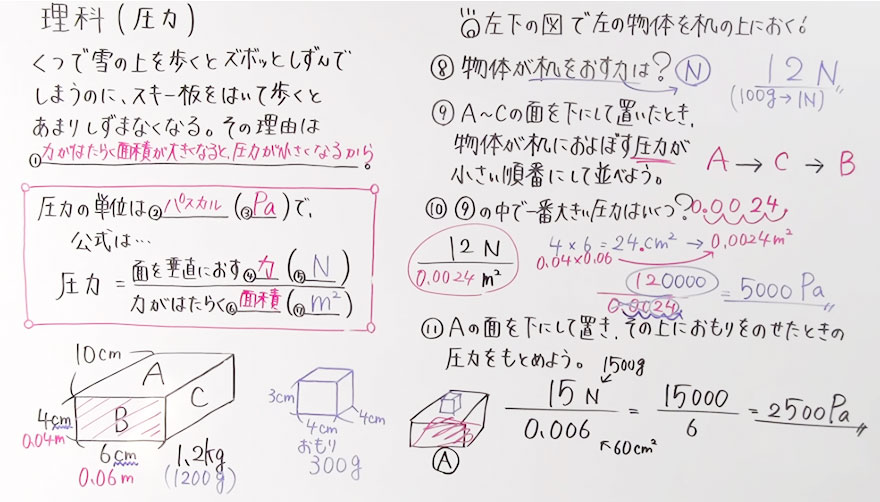 理科(圧力)
くつで雪の上を歩くとズボッとしずんで
しまうのに、スキー板をはいて歩くと
あまりしずまなくなる。その理由は
①力がはたらく面積が大きくなると、圧力が小さくなるから。
圧力の単位は②パスカル(③Pa)で、
公式は…
圧力 = 面を垂直におす④力(⑤N)
力がはたらく⑥面積(⑦m²)
10cm
A
B
C
4cm
0.04m
6cm
0.06m
1.2kg
(1200g)
3cm
4cm
4cm
おもり
300g
左下の図で左の物体を机の上におく。
⑧ 物体が机をおす力は? N 12N
(100g→1N)
⑨ A~Cの面を下にして置いたとき、
物体が机におよぼす圧力が
小さい順番にして並べよう。
A → C → B
⑩ ⑨の中で一番大きい圧力はいくつ? 0.0024
12 N
0.0024 m²
4×6=24.cm² → 0.0024m²
0.04×0.06
120000
0.0024
= 5000 Pa
⑪ Aの面を下にして置き、その上におもりをのせたときの
圧力をもとめよう。 1500g
A
15 N
0.006
60cm²
= 15000
6
= 2500Pa